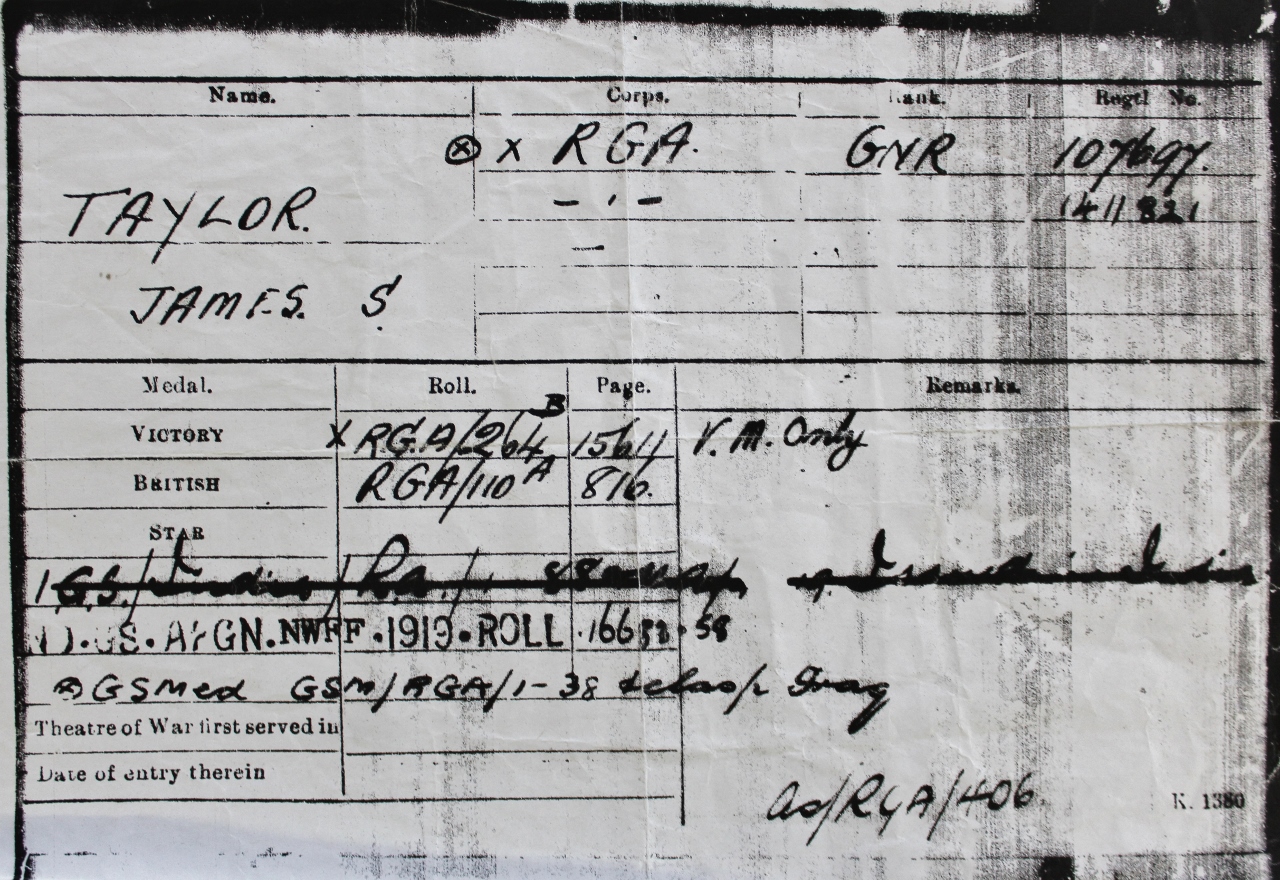 Name. Corps. Rank. Regtl No.
X X RGA. GNR 107697.
TAYLOR. - ' - 1411821
JAMES. S.
Medal. Roll. Page. Remarks.
VICTORY X RGA/264 B 15611 V.M. Only
BRITISH RGA/110 A 816.
STAR
I.G.S./India/R.A./
I.GS.AFGN.NWFF.1919.ROLL.166 58
X GSMed GSM/RGA/1-38 & clasp Iraq
Theatre of War first served in
Date of entry therein
ad/RGA/406.
K. 1380